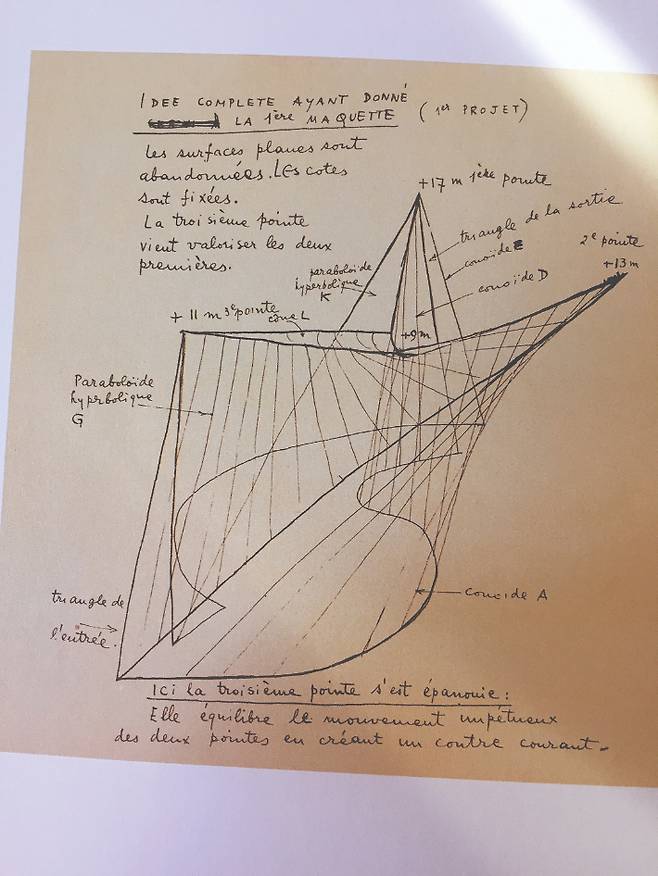 IDEE COMPLETE AYANT DONNÉ
LA 1ère MAQUETTE (1er PROJET)
Les surfaces planes sont
abandonnées. LES cotes
sont fixées.
La troisième pointe
vient valoriser les deux
premières.
+17 m 1ère pointe
triangle de la sortie
conoïde E
2e pointe
+13 m
paraboloïde
hyperbolique
K
conoïde D
+ 11 m 3e pointe
cône L
+9 m
Paraboloïde
hyperbolique
G
conoïde A
triangle de
l'entrée.
ICi la troisième pointe s'est épanouie :
Elle équilibre le mouvement impétueux
des deux pointes en créant un contre courant-